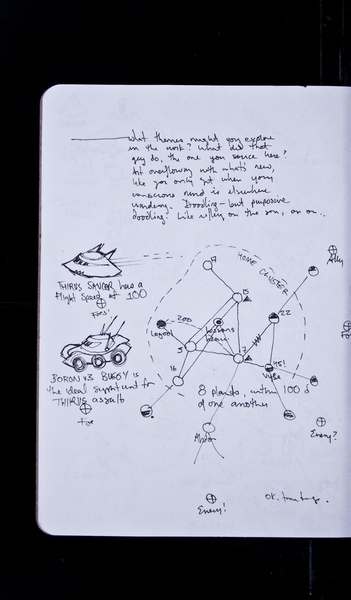 What themes might you explore
in the work? What did that
guy do, the one you source here?
Art overflowing with what's new,
like you only get when your
conscious mind is elsewhere
wandering. Doodling - but purposive
doodling. Like riffing on the son, or on..
HOME CLUSTER
9
Ally
THIRUS SAUCER has a
Flight Speed of 100
Foes!
15
200
22
Lagool
5
7
45!
Vyba
16
BORON v3 BUGGY is
the ideal support unit for
THIRUS assaults
Foe
8 planets, within 100
of one another
Enemy?
Enemy!
OK.